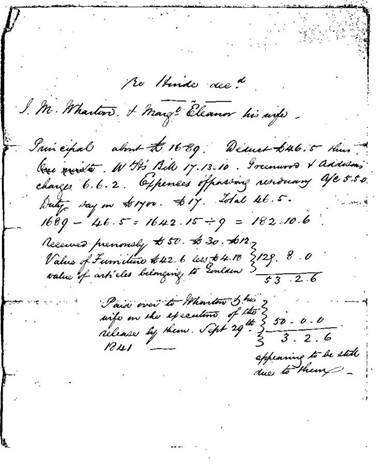 Re Hinde dec.d
J. M. Wharton & Marg.t Eleanor his wife.
Principal about £1689. Deduct £46.5 thus
One W Bill 17.13.10. Greenwood & Addisons
charges 6.6.2. Expences of passing residuary A/C 5.5.0.
Duty say on £1700. £17. Total 46.5.
1689 - 46.5 = 1642.15 ÷ 9 = 182.10.6
Received previously £50. £30. £12
Value of Furniture £42.6 less £4.18 } 129.8.0
value of articles belonging to
53.2.6
Paid over to Wharton & his
wife on the execution of the
release by them. Sept 29th } 50.0.0
1841 — 3.2.6
appearing to be still
due to them